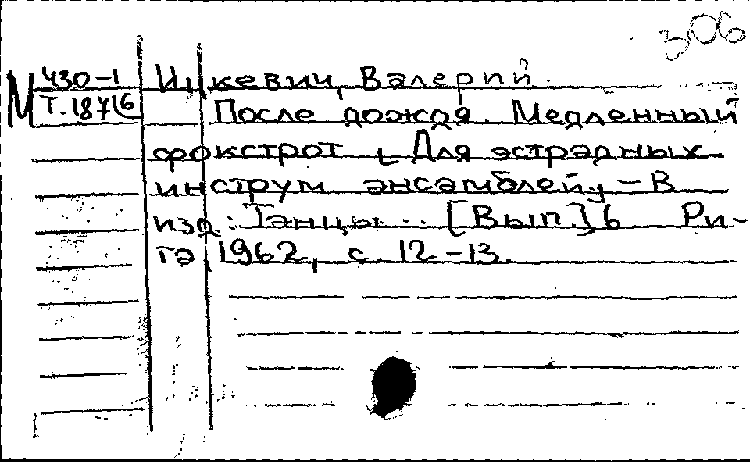 306
М Ч30-1
Т.187/6
Ицкевич, Валерий.
После дождя. Медленный
фокстрот [Для эстрадных
инструм. ансамблей]. - В
изд.: Танцы... [Вып.] 6 Ри-
га, 1962, с. 12-13.